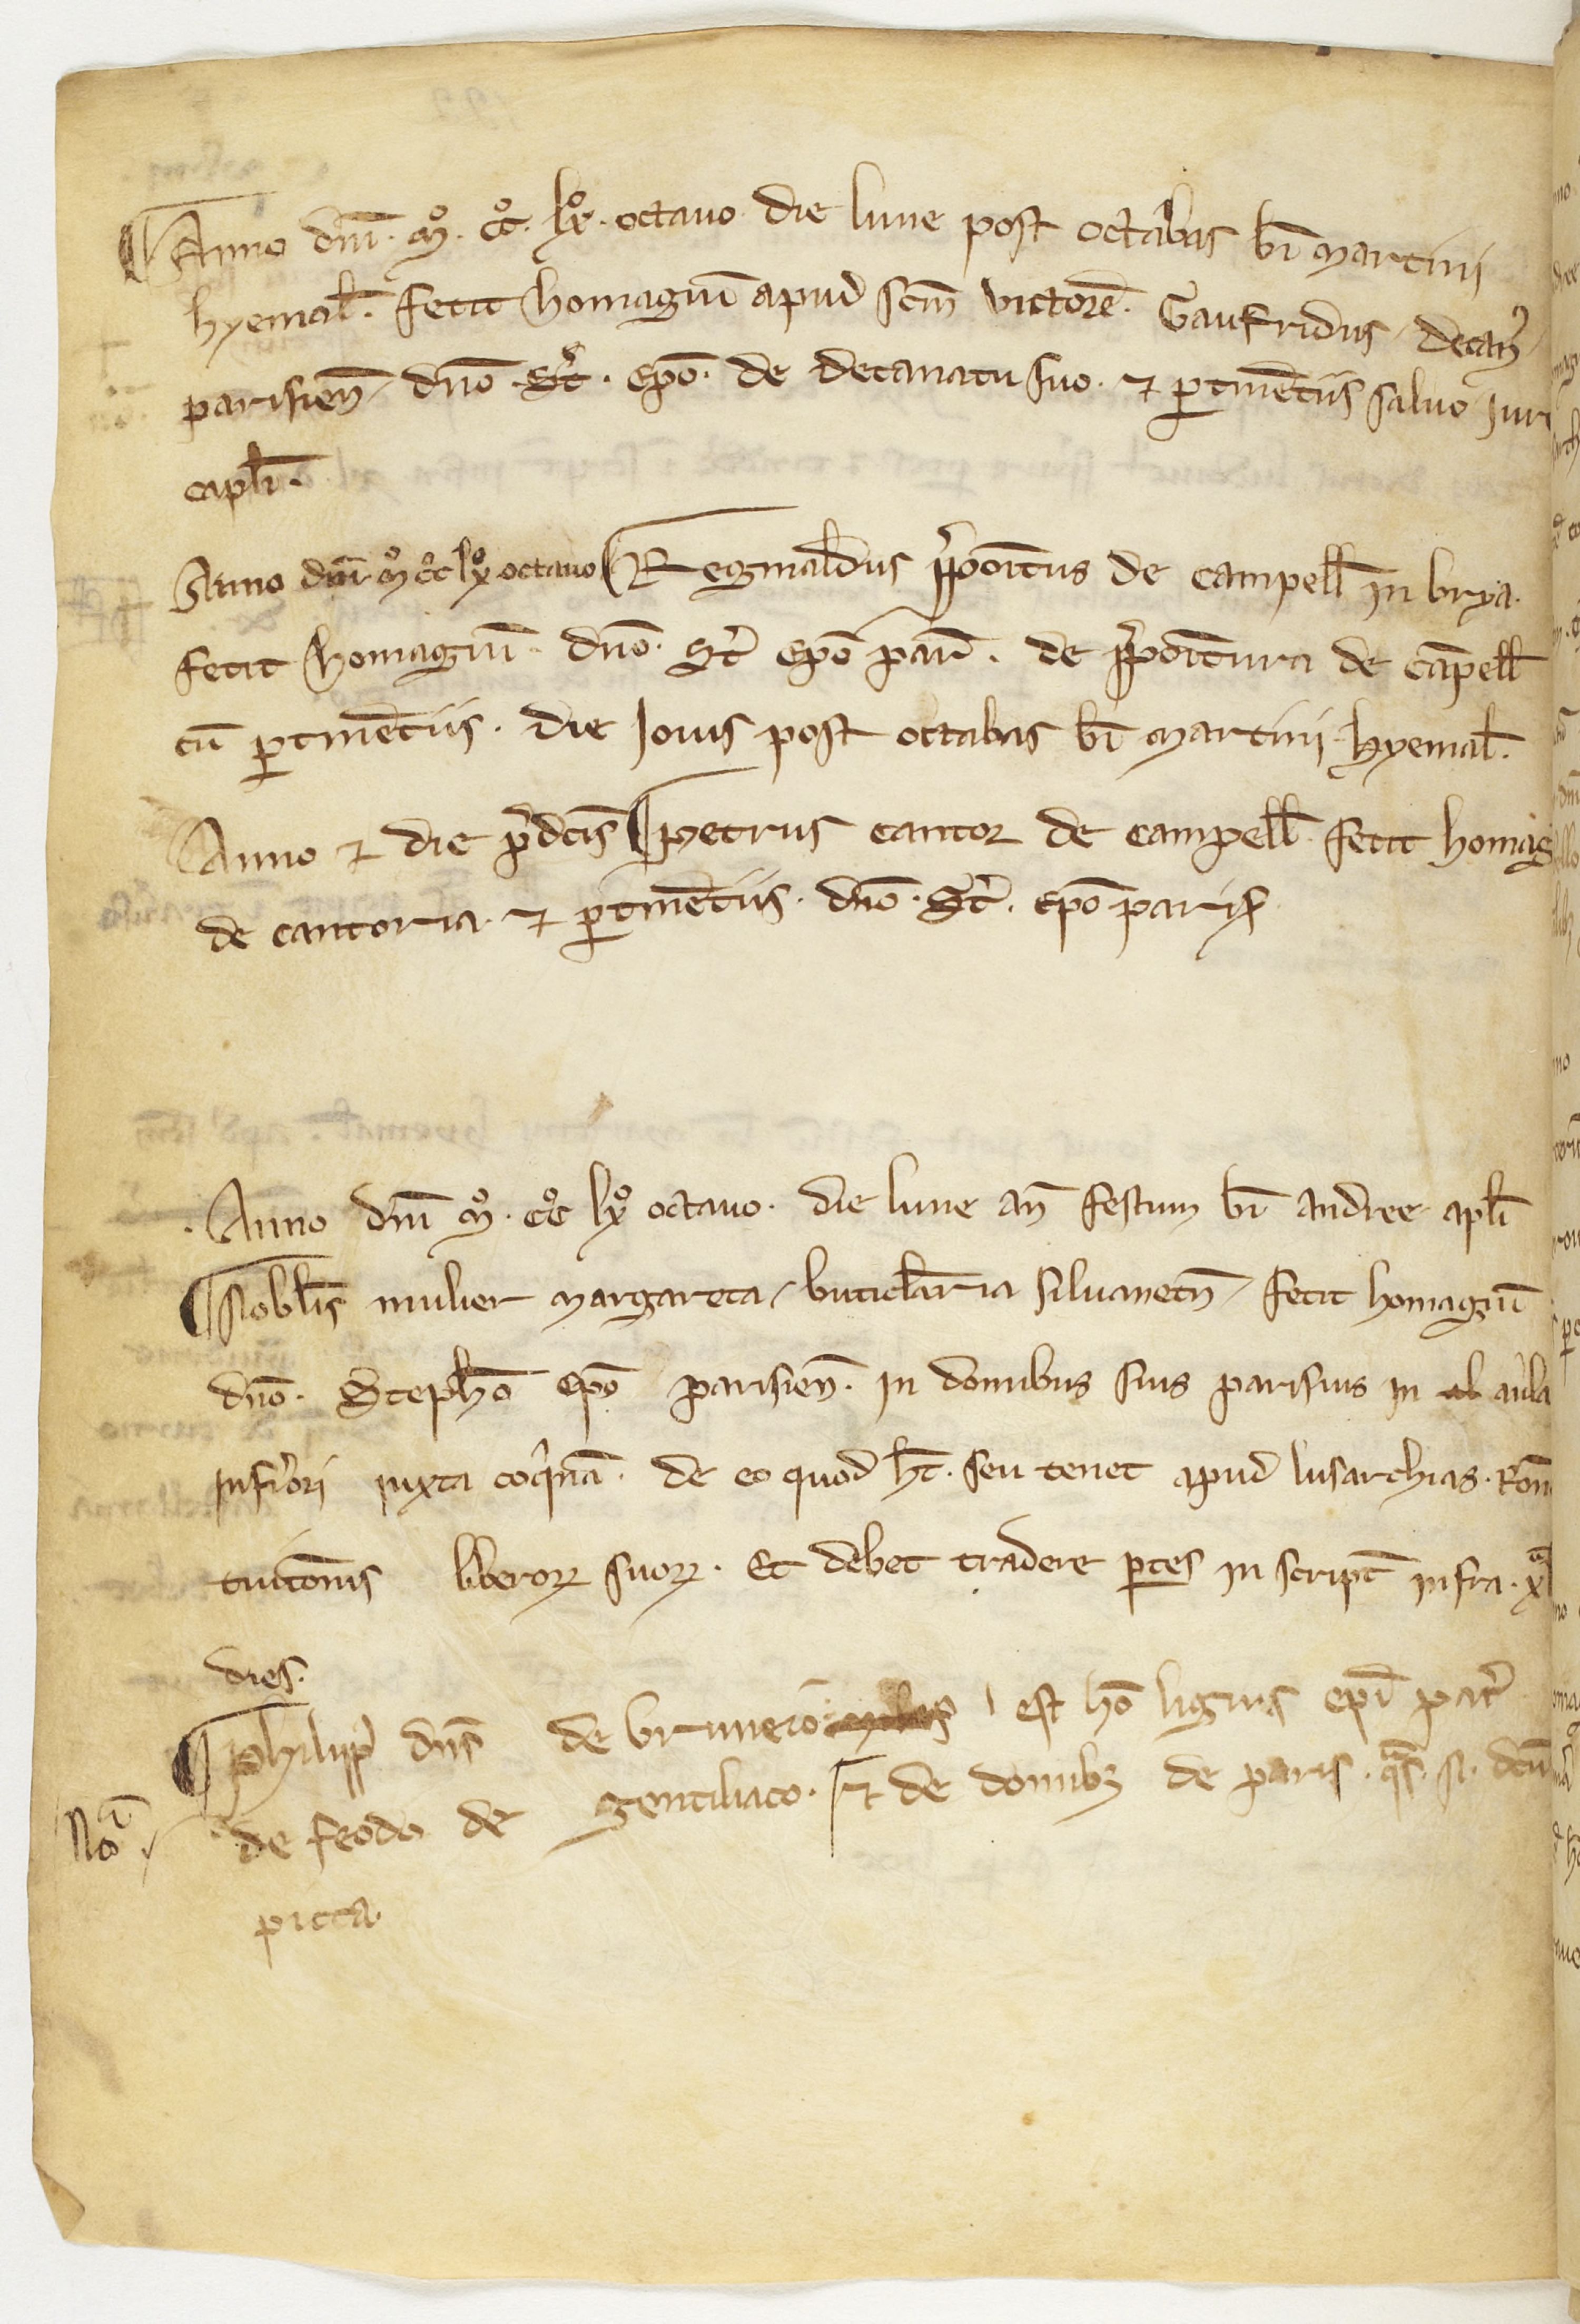 Anno dn̄i. mͦ. ccͦ. lxͦ. octauo die lune post octabas bī martini
hyemal̄. fecit homagiū apud sc̄m victorē. Gaufridus decan᷒
parisien̄ dn̄o St̄. ep̄o. de decanatu suo. ⁊ ꝑtinētiis saluo iur
capl̄i.
Anno dn̄i mͦ ccͦ lxͦ octauo Reginaldus p̄positus de campell̄ in brya.
fecit homagiū. dn̄o. St̄ ep̄o par̄. de p̄positura de cāpell̄
cū ꝑtinētiis. die Iouis post octabas bī martini hyemal̄.
Anno ⁊ die p̄dcīs petrus cantor de campell̄ fecit homag
de cantoria ⁊ ꝑtinētiis. dn̄o. St̄. ep̄o paris̄
Anno dn̄i mͦ. ccͦ lxͦ octauo. die lune an̄ festum bī andree apl̄i
Nobl̄is mulier margareta buticl̄aria siluanetn̄ fecit homagiū
dn̄o. Steph̄o ep̄o parisien̄. in domibus suis parisius in al aula
inferiori iuxta coqͥnā. de eo quod h̄t. seu tenet apud lusarchias. Rōn
tuicōnis liberoꝝ suoꝝ. Et debet tradere ꝑtes in script̄ infra. xl
dies.
philipp᷒ dn̄s de bruneio est hō ligius ep̄i par̄
Noͣ. de feodo de gentiliaco. ⁊ de domibꝫ de paris. q̄s. st. dcū
picta.